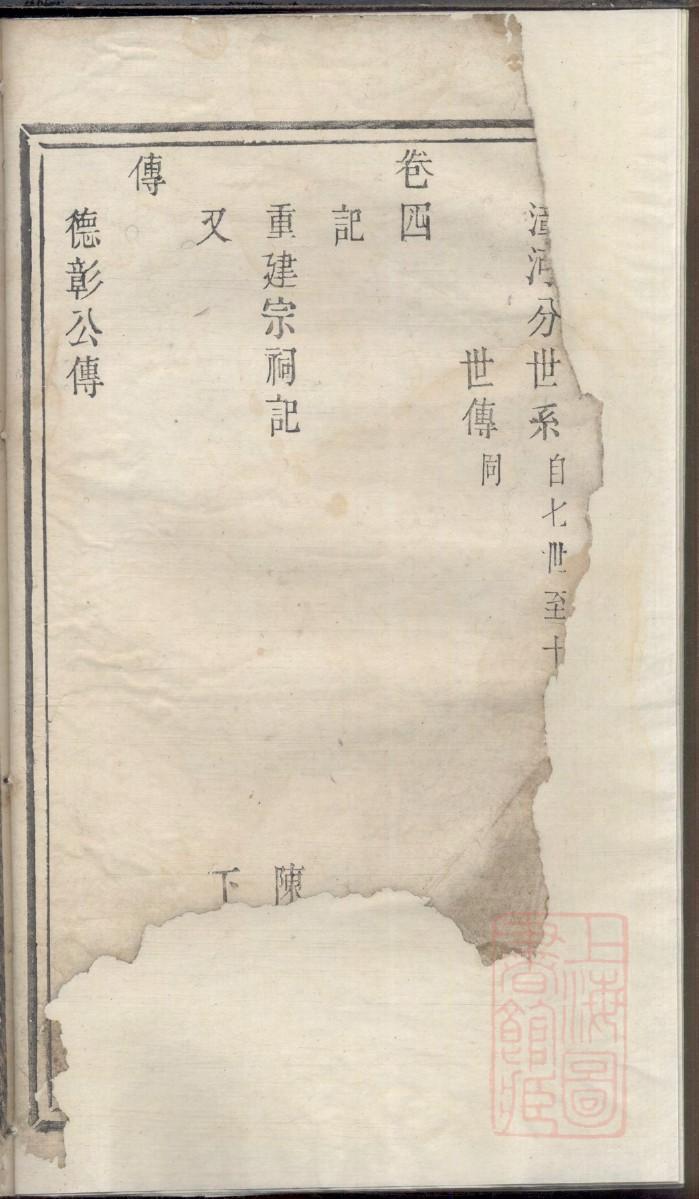 漳河分世系自七世至十
世傳同
卷四
記
重建宗祠記 陳
又 下
傳
德彰公傳
上海圖書館藏